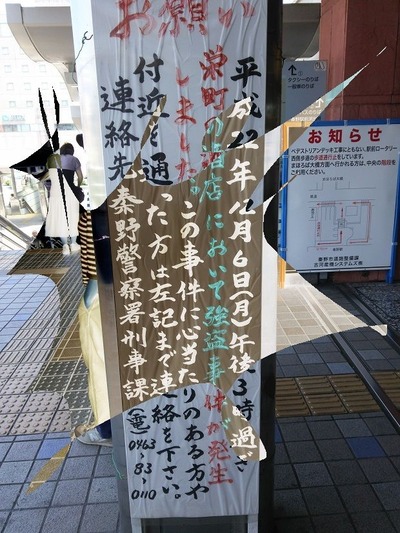 お願い
平成22年12月6日(月)午後3時過ぎ
栄町の酒店において強盗事件が発生
しました。この事件に心当たりのある方や
付近を通った方は左記まで連絡を下さい。
連絡先 秦野警察署刑事課(電)0463-83-0110
タクシーのりば
一般車のりば
お知らせ
ペデストリアンデッキ工事にともない、駅前ロータリー
西側歩道の歩道通行止をしています。
まほろば大橋方面へ行かれる方は、中央の階段を
ご利用ください。
秦野市道路整備課
古河産機システムズ㈱